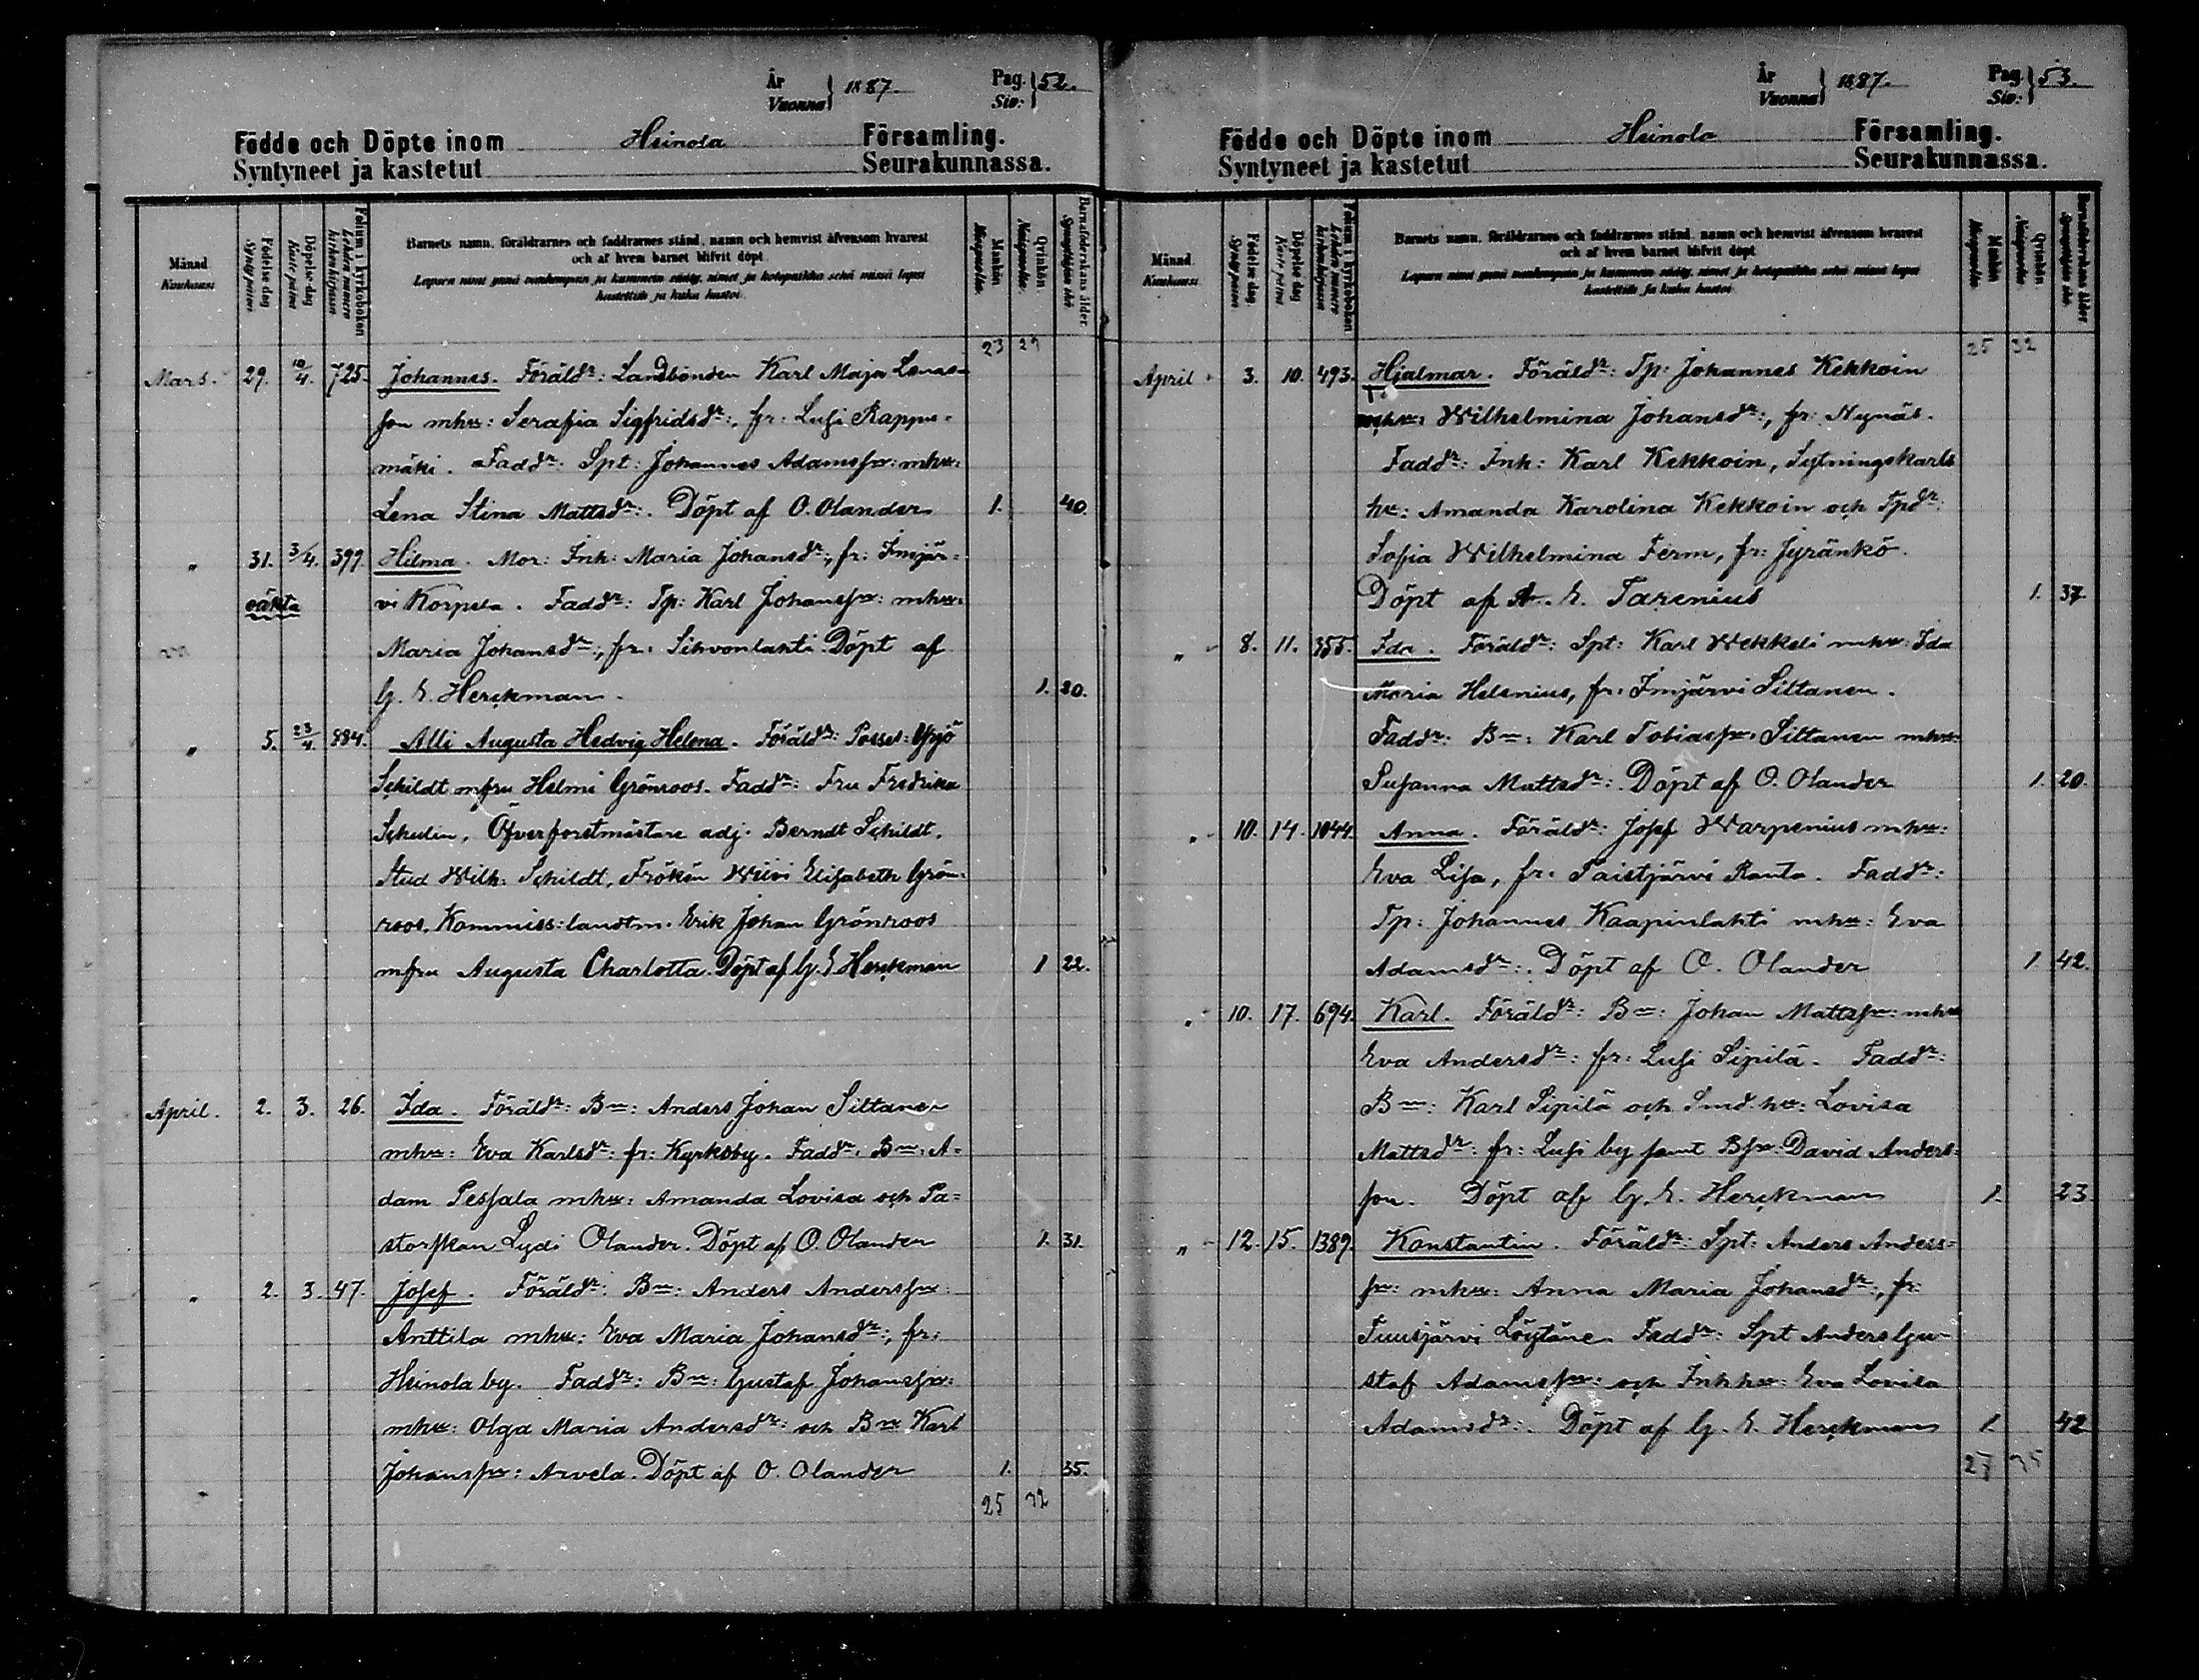 År
Vuonna } 1887.
Pag.
Siv: } 52.
Födde och Döpte inom Heinola Församling.
Syntyneet ja kastetut Seurakunnassa.
Månad
Kuukausi
Födelse-dag
Syntypäivä
Döpelse-dag
Kaste-päivä
Folium i kyrkoboken
Lehden numero kirkonkirjassa
Barnets namn, föräldrarnes och faddrarnes stånd, namn och hemvist äfvensom hvarest
och af hvem barnet blifvit döpt.
Lapsen nimi ynnä vanhempain ja kummein sääty, nimet ja kotopaikka sekä missä lapsi
kastettiin ja kuka kastoi.
Mankön
Miespuolta
Qvinkön
Naispuolta
Barnaföderskans ålder.
Synnyttäjän ikä
23 29
Mars. 29. 10/4. 725. Johannes. Föräldr: Landbonden Karl Maja Lenas-
son mhu: Serafia Sigfridsdr:, fr: Lusi Rappu-
mäki. Faddr: Spt: Johannes Adamsson: mhu:
Lena Stina Mattsdr:. Döpt af O. Olander 1. 40.
" 31. 3/4. 399. Hilma. Mor: Inh: Maria Johansdr:, fr: Imjär-
oäkta vi Korpela. Faddr: Tp: Karl Johansson: mhu:
Maria Johansdr:, fr: Sihvonlahti Döpt af
G. E. Herckman. 1. 30.
" 5. 23/4. 884. Alli Augusta Hedvig Helena. Föräldr: Posses: Yrjö
Schildt mfru Helmi Grönroos. Faddr: Fru Fredrika
Schulin, Öfverforstmästare adj. Berndt Schildt,
Stud Wilh. Schildt, Fröken Wiivi Elisabeth Grön-
roos. Kommiss: landtm. Erik Johan Grönroos
mfru Augusta Charlotta. Döpt af G. E. Herckman 1 22.
April. 2. 3. 26. Ida. Föräldr: Bn: Anders Johan Siltanen
mhu: Eva Karlsdr: fr: Kyrkoby. Faddr: Bn: A-
dam Pessala mhu: Amanda Lovisa och Pa-
storskan Lydi Olander. Döpt af O. Olander 1. 31.
" 2. 3. 47. Josef. Föräldr: Bn: Anders Andersson:
Anttila mhu: Eva Maria Johansdr:, fr:
Heinola by. Faddr: Bn: Gustaf Johansson:
mhu: Olga Maria Andersdr: och Bn Karl
Johansson: Arvela. Döpt af O. Olander 1. 35.
25 32
År
Vuonna } 1887.
Pag.
Siv: } 53.
Födde och Döpte inom Heinola Församling.
Syntyneet ja kastetut Seurakunnassa.
Månad
Kuukausi
Födelse-dag.
Syntypäivä
Döpelse-dag
Kaste-päivä
Folium i kyrkoboken
Lehden numero kirkonkirjassa
Barnets namn, föräldrarnes och faddrarnes stånd, namn och hemvist äfvensom hvarest
och af hvem barnet blifvit döpt
Lapsen nimi ynnä vanhempain ja kummein sääty, nimet ja kotopaikka sekä missä lapsi
kastettiin ja kuka kastoi
Mankön
Miespuolta
Qvinkön
Naispuolta
Barnaföderskans ålder
Synnyttäjän ikä
25 32
April 3. 10. 493. Hjalmar. Föräldr: Tp: Johannes Kekkoin
mhu: Wilhelmina Johansdr:, fr: Nynäs.
Faddr: Inh: Karl Kekkoin, Sytningskarls
hu: Amanda Karolina Kekkoin och Tpdr:
Sofia Wilhelmina Ferm, fr: Jyränkö.
Döpt af A. E. Tarenius 1. 37.
" 8. 11. 355. Ida. Föräldr: Spt: Karl Wekkeli mhu: Ida
Maria Helenius, fr: Imjärvi Siltanen.
Faddr: Bn: Karl Tobiasson Siltanen mhu:
Susanna Mattsdr:. Döpt af O. Olander 1. 20.
" 10. 14. 1044. Anna. Föräldr: Josef Warpenius mhu:
Eva Lisa, fr: Paistjärvi Ranta. Faddr:
Tp: Johannes Kaapinlahti mhu: Eva
Adamsdr:. Döpt af O. Olander 1. 42.
" 10. 17. 694. Karl. Föräldr: Bn: Johan Mattsson: mhu
Eva Andersdr: fr: Lusi Sipilä. Faddr:
Bn: Karl Sipilä och Smd. hu: Lovisa
Mattsdr: fr: Lusi by samt Bson David Anders-
son. Döpt af G. E. Herckman 1. 23.
" 12. 15. 1389. Konstantin. Föräldr: Spt: Anders Anders-
son: mhu: Anna Maria Johansdr:, fr:
Tuusjärvi Löytäne. Faddr: Spt Anders Gu-
staf Adamsson: och Inhhu: Eva Lovisa
Adamsdr:. Döpt af G. E. Herckman 1. 42
27 35